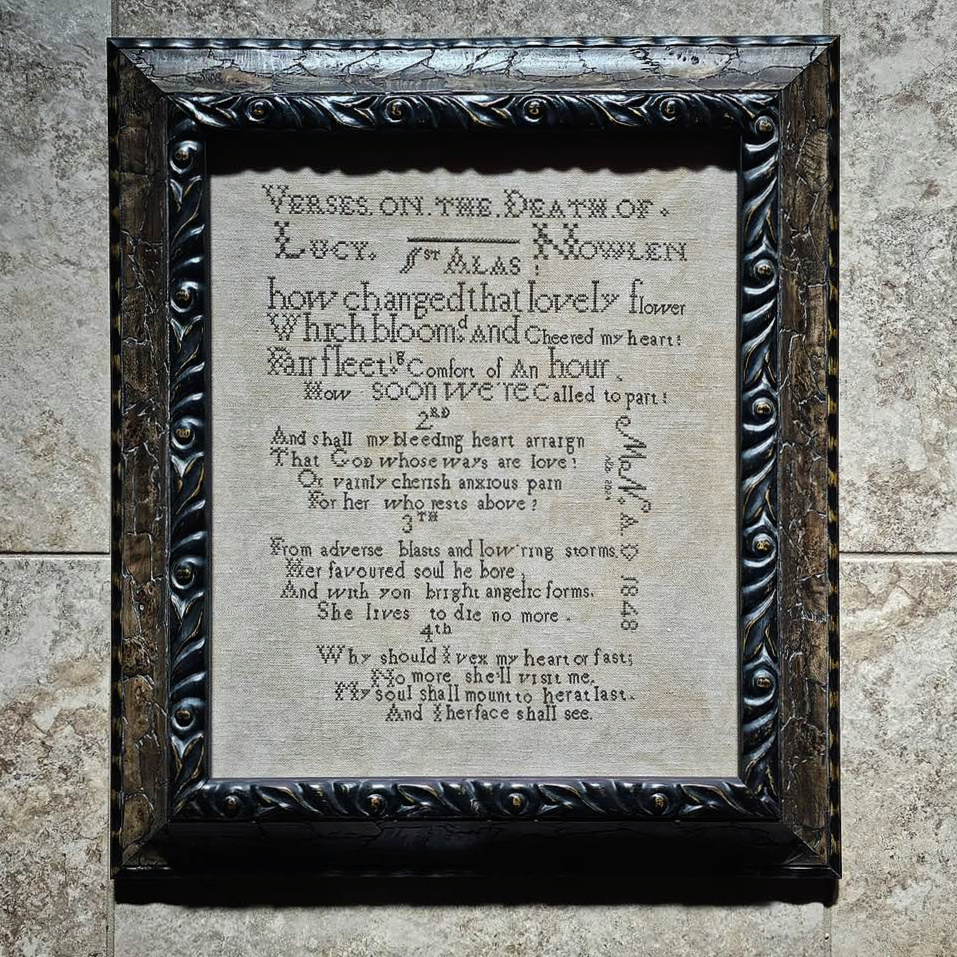 VERSES.ON.THE.DEATH.OF.
LUCY. NOWLEN
1ST ALAS!
how changed that lovely flower
Which bloom.d And Cheered my heart!
Fair fleet!g Comfort of An hour.
How soon we're Called to part!
2RD
And shall my bleeding heart arraign
That GOD whose ways are love!
Or vainly cherish anxious pain
For her who rests above?
3TH
From adverse blasts and low'ring storms,
Her favoured soul he bore.
And with yon bright angelic forms.
She lives to die no more.
4th
Why should I vex my heart or fast;
No more she'll visit me.
My soul shall mount to her at last.
And I her face shall see.
1848